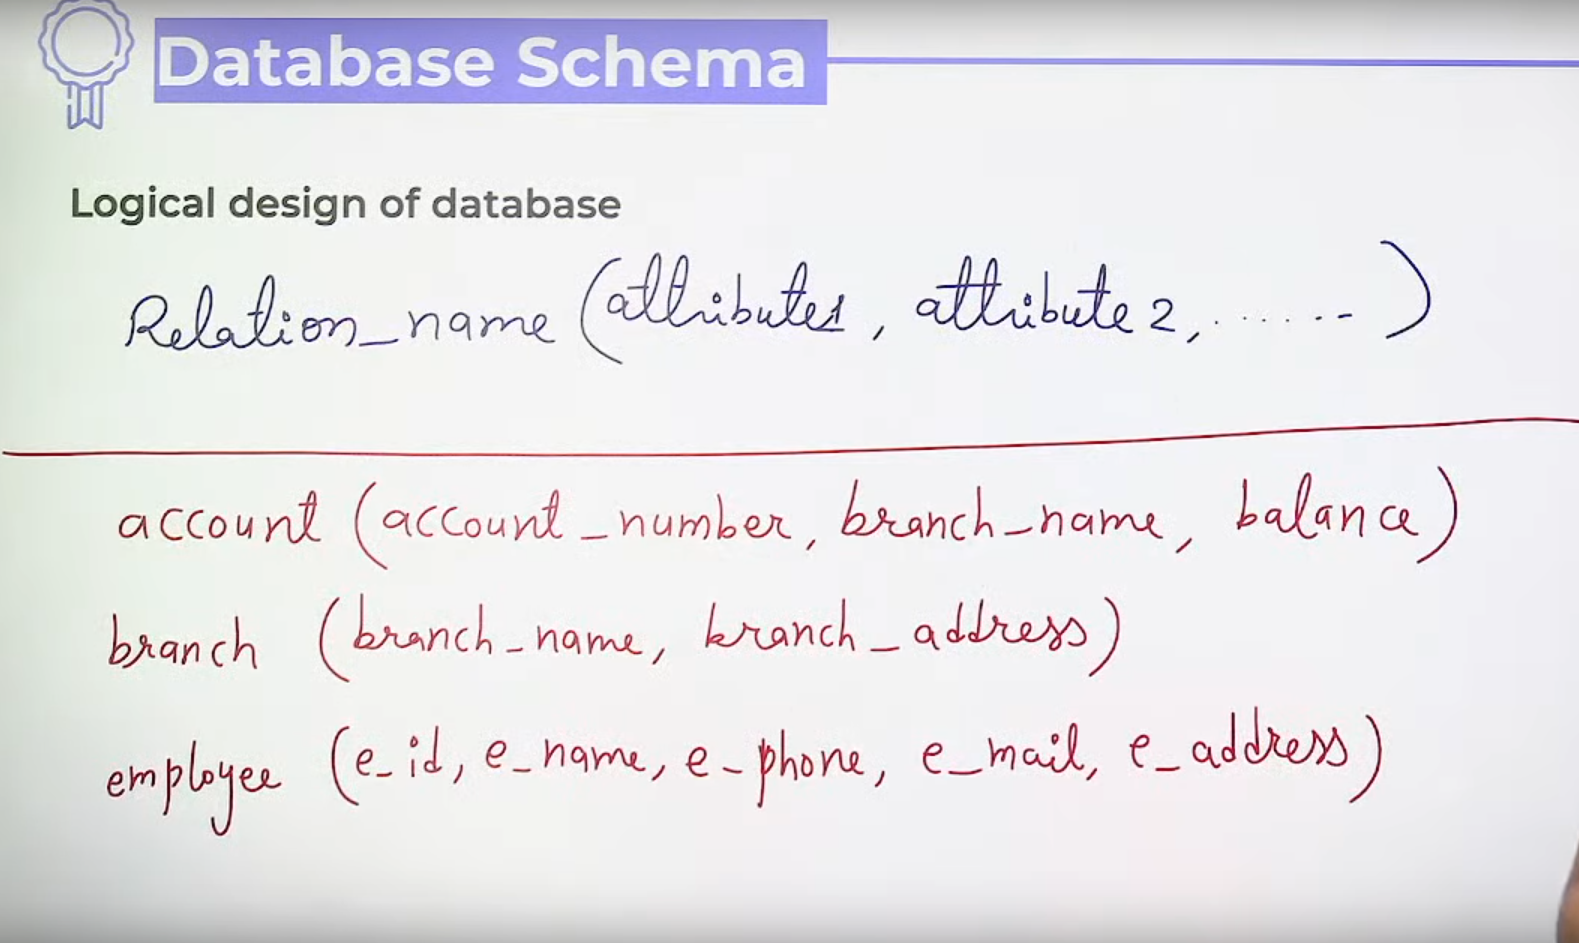 Database Schema
Logical design of database
Relation_name (attribute1, attribute 2, ........)
account (account_number, branch_name, balance)
branch (branch_name, branch_address)
employee (e_id, e_name, e_phone, e_mail, e_address)